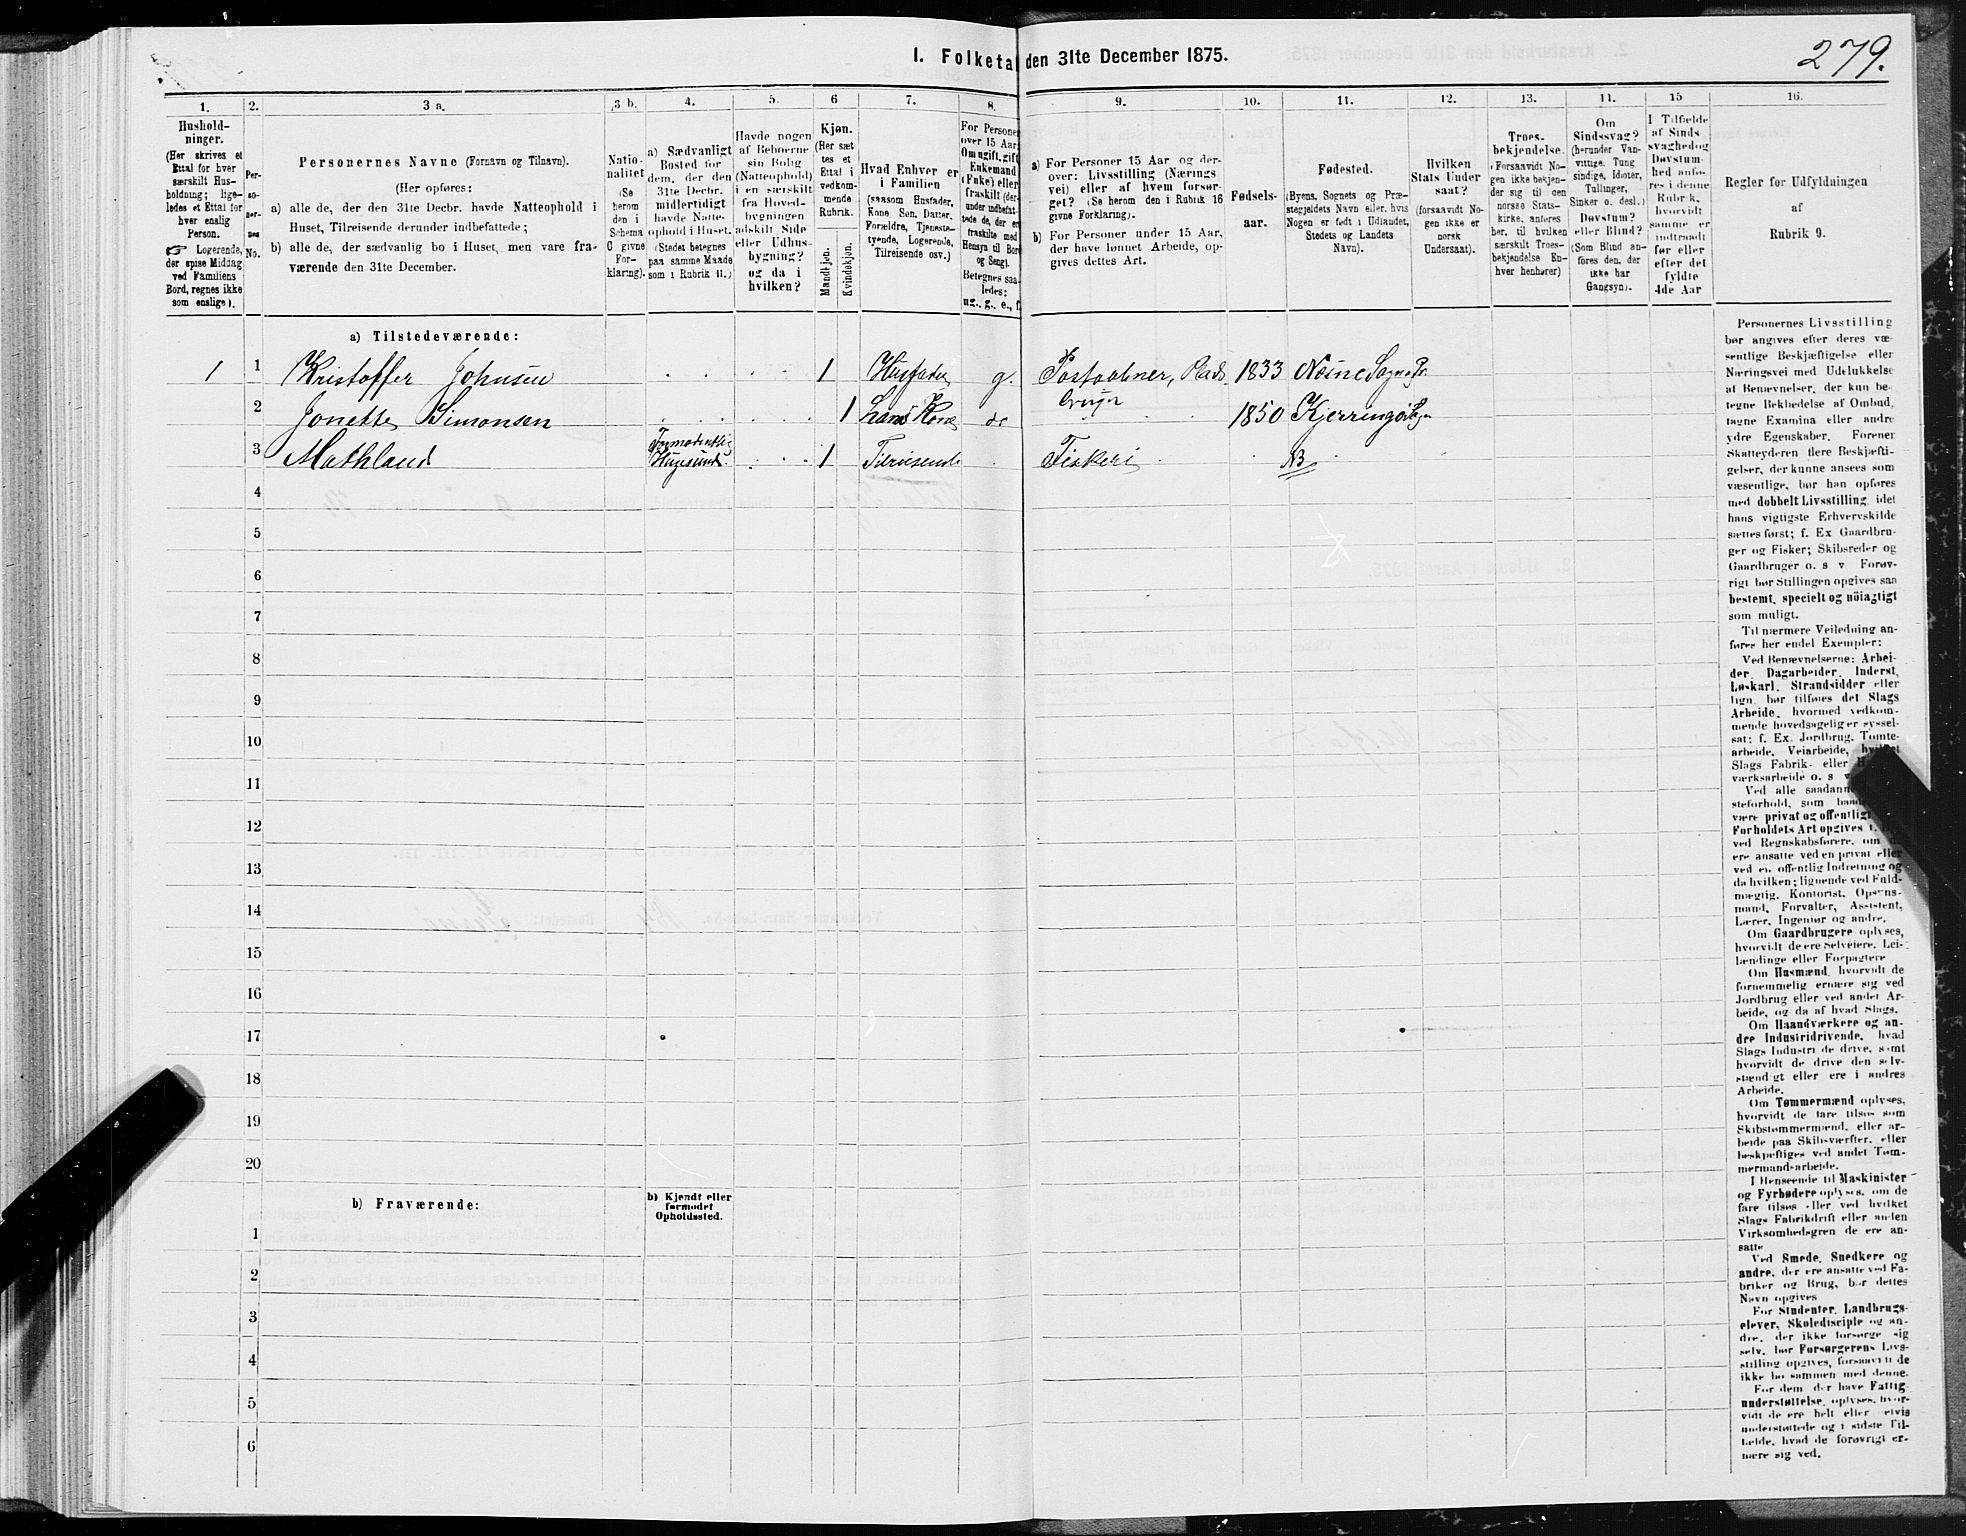 I. Folketal den 31te December 1875.
279.
1.
2.
3 a.
3 b.
4.
5.
6
7.
8.
9.
10.
11.
12.
13.
14.
15
16.
Hushold-
ninger.
(Her skrives et
Ettal for hver
særskilt Hus-
holdning; lige-
ledes et Ettal for
hver enslig
Person.
☞ Logerende,
der spise Middag
ved Familiens
Bord, regnes ikke
som enslige).
Per-
so-
ner-
nes
No.
Personernes Navne (Fornavn og Tilnavn).
(Her opføres:
a) alle de, der den 31te Decbr. havde Natteophold i
Huset, Tilreisende derunder indbefattede;
b) alle de, der sædvanlig bo i Huset, men vare fra-
værende den 31te December.
Natio-
nalitet
(Se
herom
den i
Schema
O givne
For-
klaring).
a) Sædvanligt
Bosted for
dem, der den
31te Decbr.
midlertidigt
havde Natte-
ophold i Huset
(Stedet betegnes
paa samme Maade
som i Rubrik 11.)
Havde nogen
af Beboerne
sin Bolig
(Natteophold)
i en særskilt
fra Hoved-
bygningen
adskilt Side
eller Udhus-
bygning?
og da i
hvilken?
Kjøn.
(Her sæt
tes et
Ettal i
vedkom-
mende
Rubrik.
Mandkjøn.
Kvindekjøn.
Hvad Enhver er
i Familien
(saasom Husfader,
Kone, Søn, Datter,
Forældre, Tjeneste-
tyende, Logerende,
Tilreisende osv.)
For Personer
over 15 Aar:
Om ugift, gift,
Enkemand
(Enke) eller
fraskilt (der-
under indbefat-
tede de, der er
fraskilte med
Hensyn til Bord
og Seng).
Betegnes saa-
ledes:
ug., g., e., f.
a) For Personer 15 Aar og der-
over: Livsstilling (Nærings
vei) eller af hvem forsør-
get? (Se herom den i Rubrik 16
givne Forklaring).
b) For Personer under 15 Aar,
der have lønnet Arbeide, op-
gives dettes Art.
Fødsels-
aar.
Fødested.
(Byens, Sognets og Præ-
stegjeldets Navn eller, hvis
Nogen er født i Udlandet,
Stedets og Landets
Navn).
Hvilken
Stats Under
saat?
(forsaavidt No-
gen ikke er
norsk
Undersaat).
Troes-
bekjendelse.
(Forsaavidt No-
gen ikke bekjen-
der sig til den
norske Stats-
kirke, anføres
her, til hvilken
særskilt Troes-
bekjendelse En-
hver henhører)
Om
Sindssvag?
(herunder Van-
vittige, Tung
sindige, Idioter,
Tullinger,
Sinker o. desl.)
Døvstum?
eller Blind?
(Som Blind an-
føres den, der
ikke har
Gangsyn).
I Tilfælde
af Sinds
svaghed og
Døvstum-
hed anfø-
res i denne
Rubrik,
hvorvidt
samme er
indtraadt
før eller
efter det
fyldte
4de Aar
Regler for Udfyldningen
af
Rubrik 9.
a) Tilstedeværende:
1 1 Kristoffer Johnsen 1 Husfader g. Postaabner, Plads 1833 Nesne Sogn Pr.
bruger
2 Jonette Simonsen 1 Hans Kone do 1850 Kjerringø
3 Mathland Formodentlig 1 Tilreisende Fiskeri NB
Hugesund
4
5
6
7
8
9
10
11
12
13
14
15
16
17
18
19
20
b) Fraværende:
b) Kjendt eller
formodet
Opholdssted.
1
2
3
4
5
6
Personernes Livsstilling
bør angives efter deres væ-
sentlige Beskjæftigelse eller
Næringsvei med Udelukkelse
af Benævnelser, der kun be-
tegne Beklædelse af Ombud,
tagne Examina eller andre
ydre Egenskaber. Forener
Skatteyderen flere Beskjæfti-
gelser, der kunne ansees som
væsentlige, bør han opføres
med dobbelt Livsstilling, idet
hans vigtigste Erhvervskilde
sættes først; f. Ex Gaardbru-
ger og Fisker; Skibsreder og
Gaardbruger o. s v Forøv-
rigt bør Stillingen opgives saa
bestemt, specielt og nöiagtigt
som muligt.
Til nærmere Veiledning an-
føres her endel Exempler:
Ved Benævnelserne: Arbei-
der, Dagarbeider, Inderst,
Løskarl, Strandsidder eller
lign. bør tilføies det Slags
Arbeide, hvormed vedkom-
mende hovedsagelig er syssel-
sat; f. Ex. Jordbrug, Tomte-
arbeide, Veiarbeide, hvilket
Slags Fabrik- eller
værksarbeide o. s v
Ved alle saadanne
steforhold, som
være privat og offentlig
Forholdets Art opgives
ved Regnskabsførere, om
ere ansatte ved en privat eller
ved en offentlig Indretning og
da hvilken; lignende ved Fuld-
mægtig, Kontorist, Opsyns-
mand, Forvalter, Assistent,
Lærer, Ingeniør og andre.
Om Gaardbrugere oplyses,
hvorvidt de ere Selveiere, Lei-
lændinge eller Forpagtere
Om Husmænd, hvorvidt de
fornemmelig ernære sig ved
Jordbrug eller ved andet Ar-
beide, og da af hvad Slags.
Om Haandværkere og an-
dre Industridrivende, hvad
Slags Industri de drive, samt
hvorvidt de drive den selv-
stændigt eller ere i andres
Arbeide.
Om Tømmermænd oplyses,
hvorvidt de fare tilsøs som
Skibstømmermænd, eller ar-
beide paa Skibsværfter, eller
beskjæftiges ved andet Tøm-
mermandsarbeide.
I Henseende til Maskinister
og Fyrbødere oplyses, om de
fare tilsøs eller ved hvilket
Slags Fabrikdrift eller anden
Virksomhedsgren de ere an-
satte
Ved Smede, Snedkere og
andre, der ere ansatte ved Fa-
briker og Brug, bør dettes
Navn opgives
For Studenter, Landbrugs-
elever, Skoledisciple og an-
dre, der ikke forsørge sig
selv, bør Forsørgerens Livs-
stilling opgives, forsaavidt de
ikke bo sammen med denne.
For dem, der have Fattig-
understøttelse, oplyses, hvor-
vidt de ere helt eller delvis
understøttede og i sidste Til-
fælde, hvad de forøvrigt er-
nære sig ved.